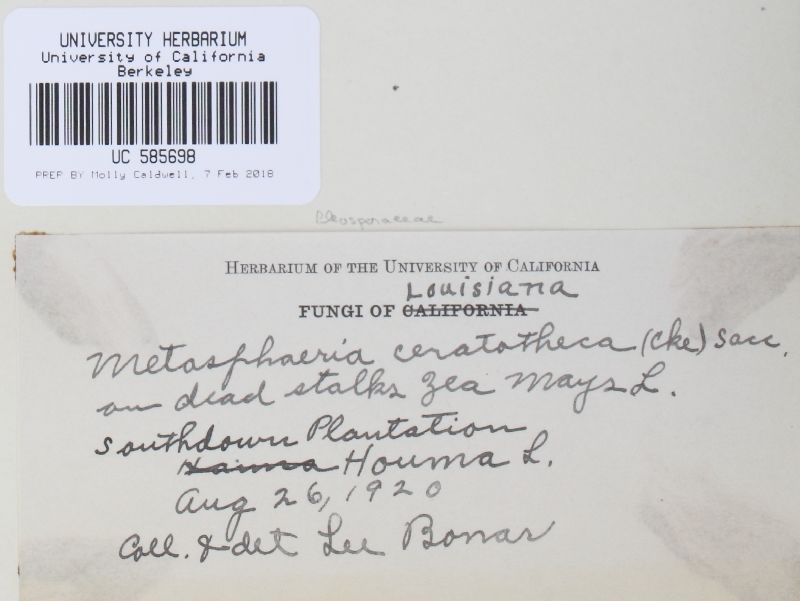 UNIVERSITY HERBARIUM
University of California
Berkeley
UC 585698
PREP BY Molly Caldwell, 7 Feb 2018
Pleosporaceae
HERBARIUM OF THE UNIVERSITY OF CALIFORNIA
Louisiana
FUNGI OF CALIFORNIA
Metasphaeria ceratotheca (Cke) Sacc.
on dead stalks Zea Mays L.
Southdown Plantation
Houma L.
Aug 26, 1920
Coll. & det Lee Bonar